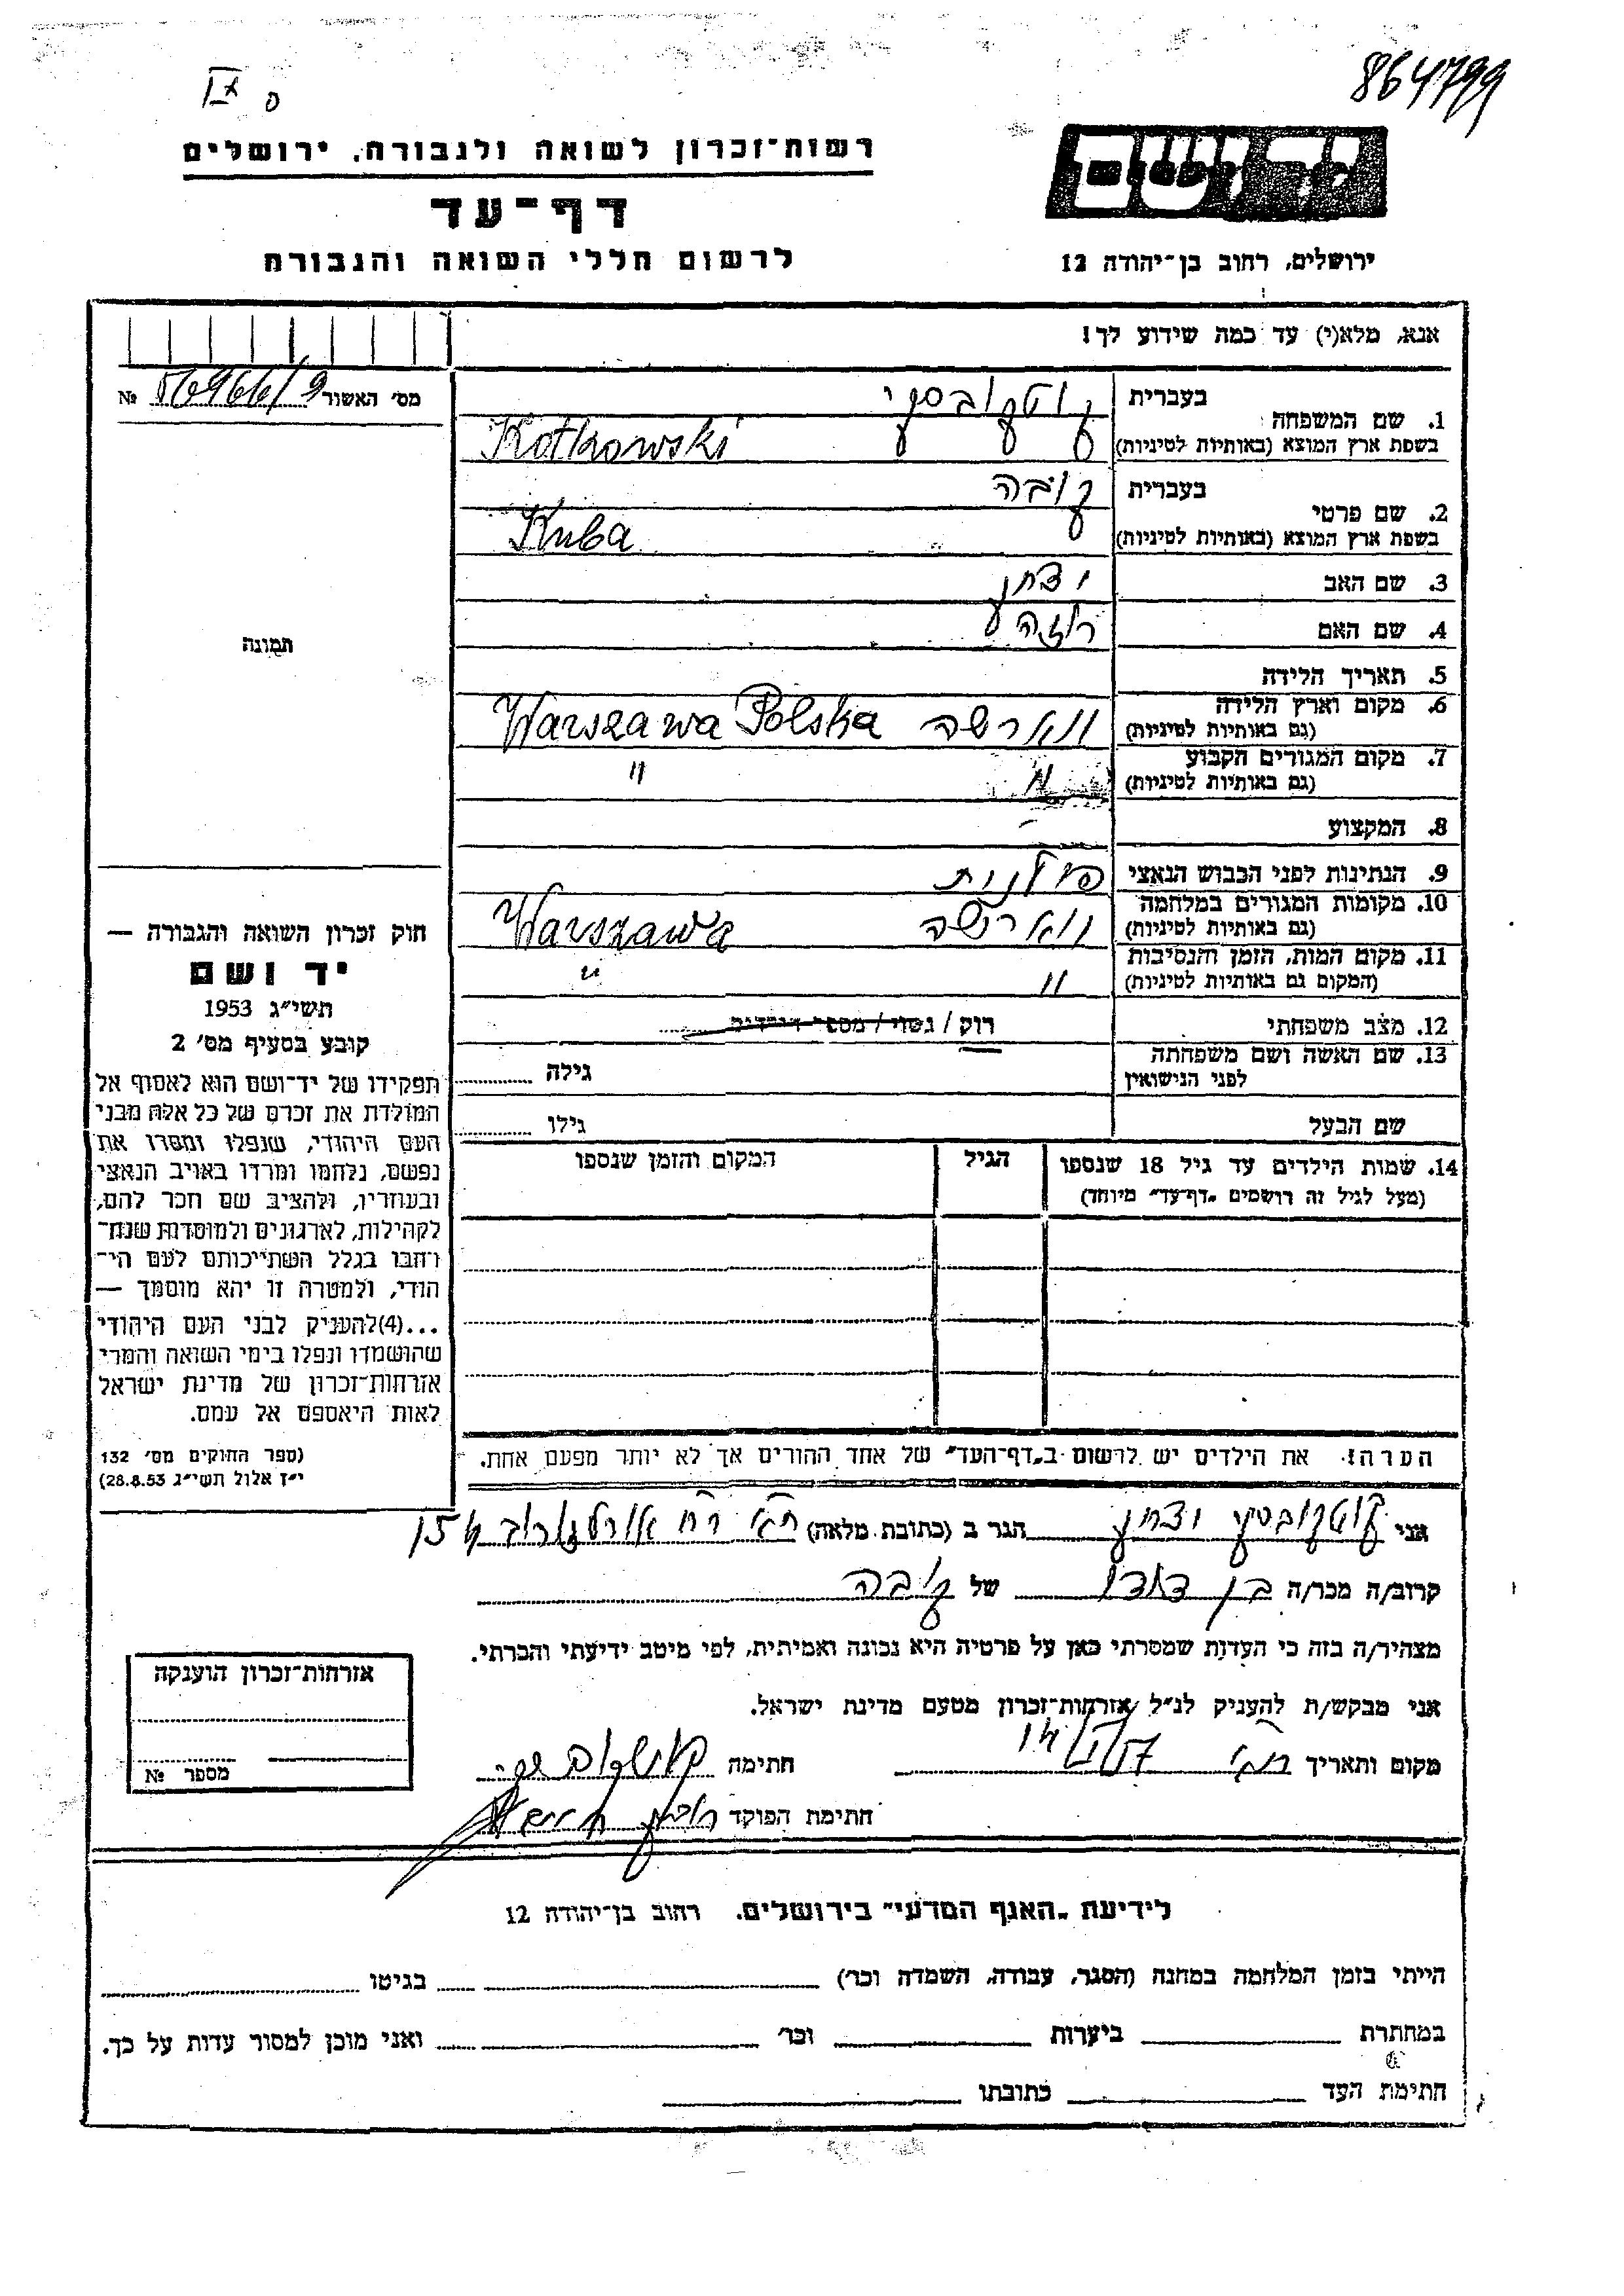 864799
רשות־זכרון לשואה ולגבורה, ירושלים
יד ושם
דף־עד
לרשום חללי השואה והגבורה
ירושלים, רחוב בן־יהודה 12
אנא, מלא(י) עד כמה שידוע לך!
מס' האשור 56966/9 №
בעברית קוטקובסקי
1. שם המשפחה
בשפת ארץ המוצא (באותיות לטיניות) Kotkowski
בעברית קובה
2. שם פרטי
בשפת ארץ המוצא (באותיות לטיניות) Kuba
3. שם האב יצחק
4. שם האם רוזה
תמונה
5. תאריך הלידה
6. מקום וארץ הלידה
(גם באותיות לטיניות) ווארשה Warszawa Polska
7. מקום המגורים הקבוע
(גם באותיות לטיניות) " "
8. המקצוע -
9. הנתינות לפני הכבוש הנאצי פולנית
10. מקומות המגורים במלחמה
(גם באותיות לטיניות) ווארשה Warszawa
11. מקום המות, הזמן והנסיבות
(המקום גם באותיות לטיניות) " "
12. מצב משפחתי רווק / נשוי / מספר הילדים
13. שם האשה ושם משפחתה
לפני הנישואין גילה
שם הבעל גילו
14. שמות הילדים עד גיל 18 שנספו
(מעל לגיל זה רושמים „דף־עד" מיוחד)
הגיל
המקום והזמן שנספו
חוק זכרון השואה והגבורה —
יד ושם
תשי"ג 1953
קובע בסעיף מס' 2
תפקידו של יד־ושם הוא לאסוף אל
המולדת את זכרם של כל אלה מבני
העם היהודי, שנפלו ומסרו את
נפשם, נלחמו ומרדו באויב הנאצי
ובעוזריו, ולהציב שם וזכר להם,
לקהילות, לארגונים ולמוסדות שנח־
רבו בגלל השתייכותם לעם הי־
הודי, ולמטרה זו יהא מוסמך —
...(4)להעניק לבני העם היהודי
שהושמדו ונפלו בימי השואה והמרי
אזרחות־זכרון של מדינת ישראל
לאות היאספם אל עמם.
(ספר החוקים מס' 132
י"ז אלול תשי"ג 28.8.53)
הערה: את הילדים יש לרשום ב„דף־העד" של אחד ההורים אך לא יותר מפעם אחת.
אני קוטקובסקי יצחק הגר ב (כתובת מלאה) ת"א רח'
קרוב/ה מכר/ה בן דודו של קובה
מצהיר/ה בזה כי העדות שמסרתי כאן על פרטיה היא נכונה ואמיתית, לפי מיטב ידיעתי והכרתי.
אני מבקש/ת להעניק לנ"ל אזרחות־זכרון מטעם מדינת ישראל.
מקום ותאריך חתימה קוטקובסקי
חתימת הפוקד
אזרחות־זכרון הוענקה
מספר №
לידיעת „האגף המדעי" בירושלים. רחוב בן־יהודה 12
הייתי בזמן המלחמה במחנה (הסגר, עבודה, השמדה וכו') בגיטו
במחתרת ביערות וכו' ואני מוכן למסור עדות על כך.
חתימת העד כתובתו